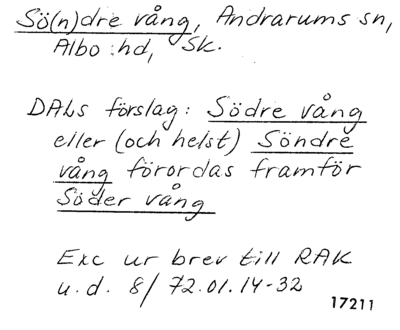 Sö(n)dre vång, Andrarums sn,
Albo hd, Sk.
DALs förslag: Södre vång
eller (och helst) Söndre
vång förordas framför
Söder vång
Exc ur brev till RAK
u.d. 8/72.01.14-32
17211